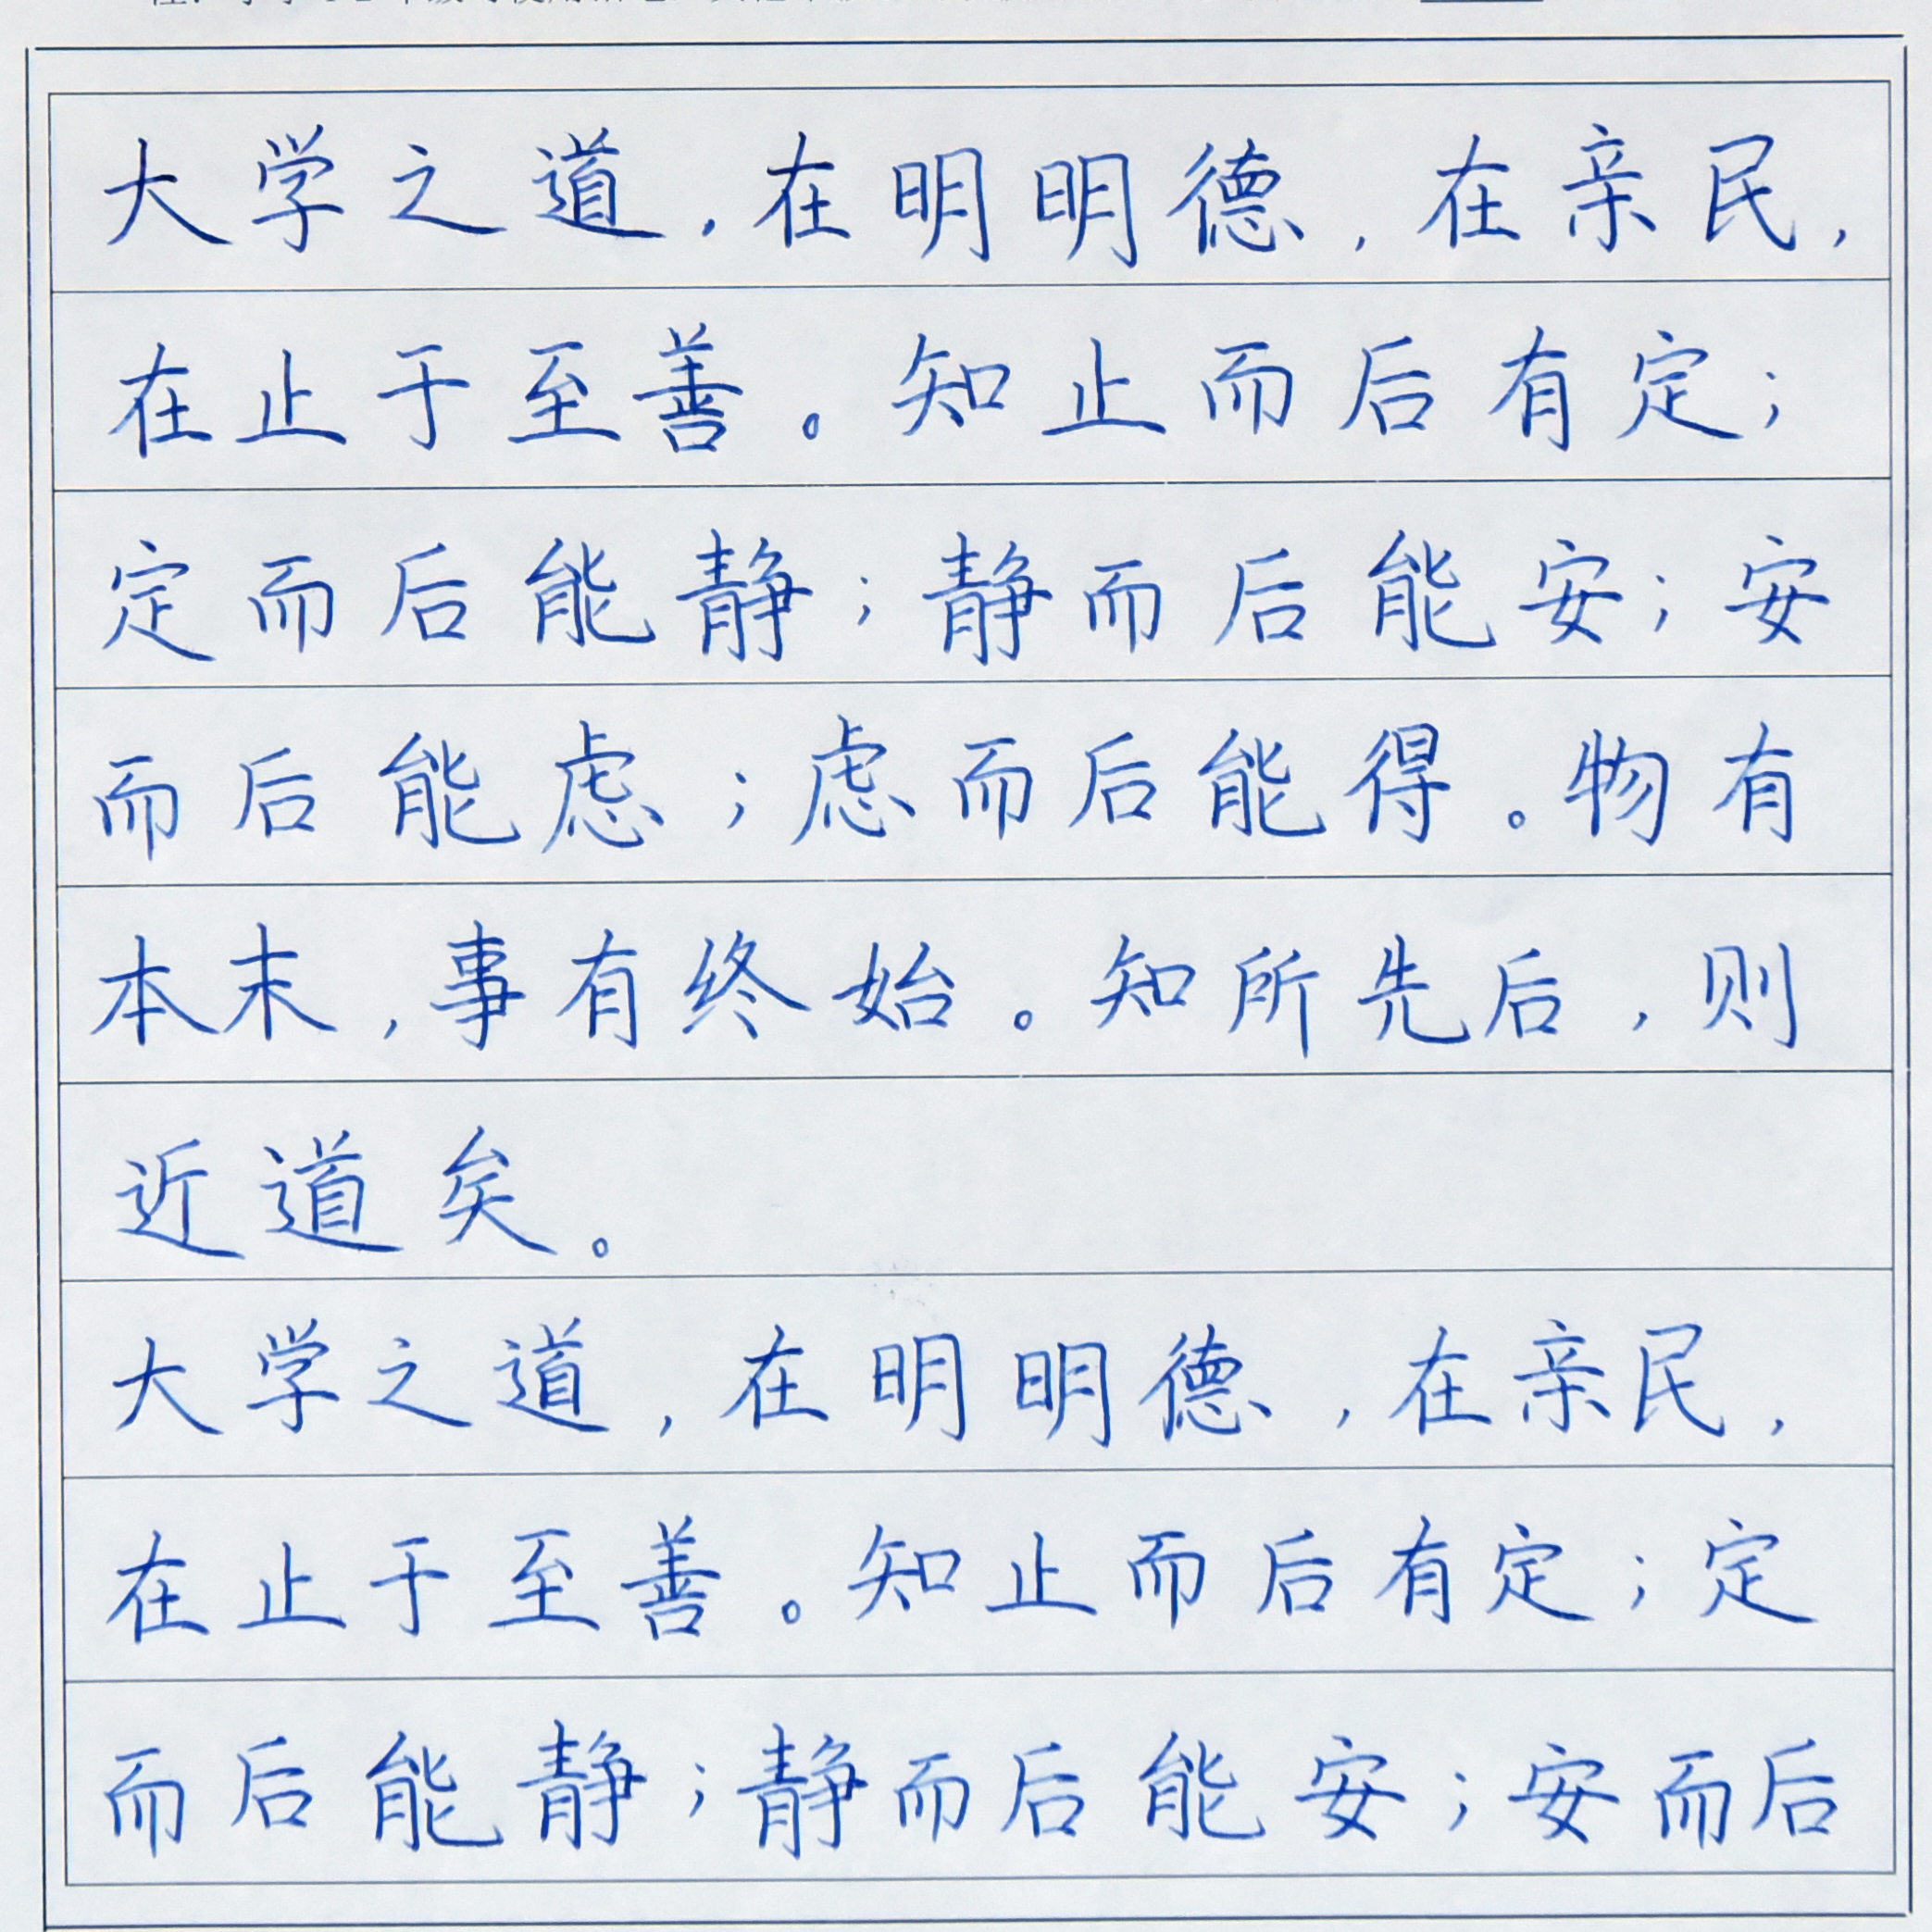 大学之道，在明明德，在亲民，
在止于至善。知止而后有定；
定而后能静；静而后能安；安
而后能虑；虑而后能得。物有
本末，事有终始。知所先后，则
近道矣。
大学之道，在明明德，在亲民，
在止于至善。知止而后有定；定
而后能静；静而后能安；安而后